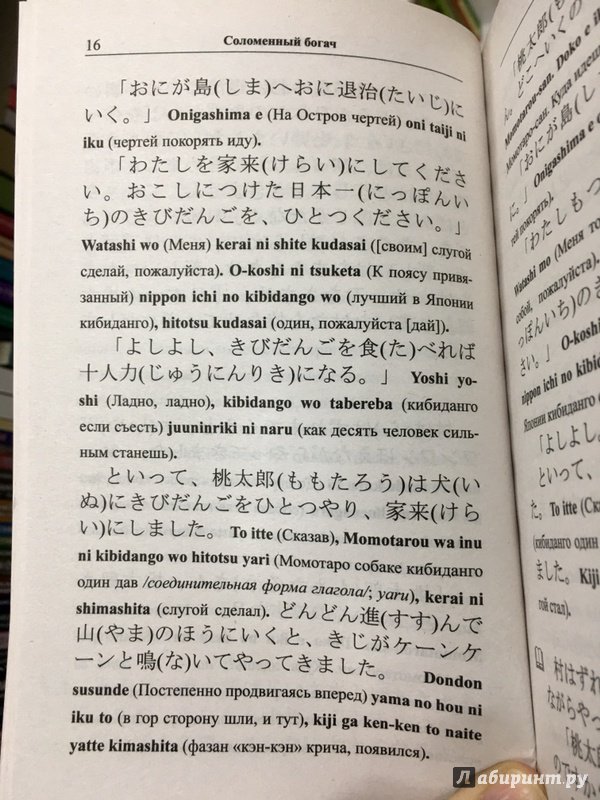 16 Соломенный богач
「おにが島(しま)へおに退治(たいじ)に
いく。」 Onigashima e (На Остров чертей) oni taiji ni
iku (чертей покорять иду).
「わたしを家来(けらい)にしてくださ
い。おこしにつけた日本一(にっぽんい
ち)のきびだんごを、ひとつください。」
Watashi wo (Меня) kerai ni shite kudasai ([своим] слугой
сделай, пожалуйста). O-koshi ni tsuketa (К поясу привя-
занный) nippon ichi no kibidango wo (лучший в Японии
кибиданго), hitotsu kudasai (один, пожалуйста [дай]).
「よしよし、きびだんごを食(た)べれば
十人力(じゅうにんりき)になる。」 Yoshi yo-
shi (Ладно, ладно), kibidango wo tabereba (кибиданго
если съесть) juuninriki ni naru (как десять человек силь-
ным станешь).
といって、桃太郎(ももたろう)は犬(い
ぬ)にきびだんごをひとつやり、家来(けら
い)にしました。 To itte (Сказав), Momotarou wa inu
ni kibidango wo hitotsu yari (Момотаро собаке кибиданго
один дав /соединительная форма глагола/; yaru), kerai ni
shimashita (слугой сделал). どんどん進(すす)んで
山(やま)のほうにいくと、きじがケーンケ
ーンと鳴(な)いてやってきました。 Dondon
susunde (Постепенно продвигаясь вперед) yama no hou ni
iku to (в гор сторону шли, и тут), kiji ga ken-ken to naite
yatte kimashita (фазан «кэн-кэн» крича, появился).
「桃太郎(も
どこへいくの
Momotarou-san. Doko e ik
Момотаро-сан. Куда идеш
「おにが島(し
に。」 Onigashima e
тей покорять).
「わたしもつ
Watashi mo (Меня то
собой, пожалуйста).
っぽんいち)のき
さい。」 O-kosh
nippon ichi no kibid
Японии кибиданго о
「よしよし。
といって、
た。 To itte (Сказав
(кибиданго один
ました。 Kiji
гой стал).
村はずれ
ながらやっ
「桃太郎
лабиринт.ру